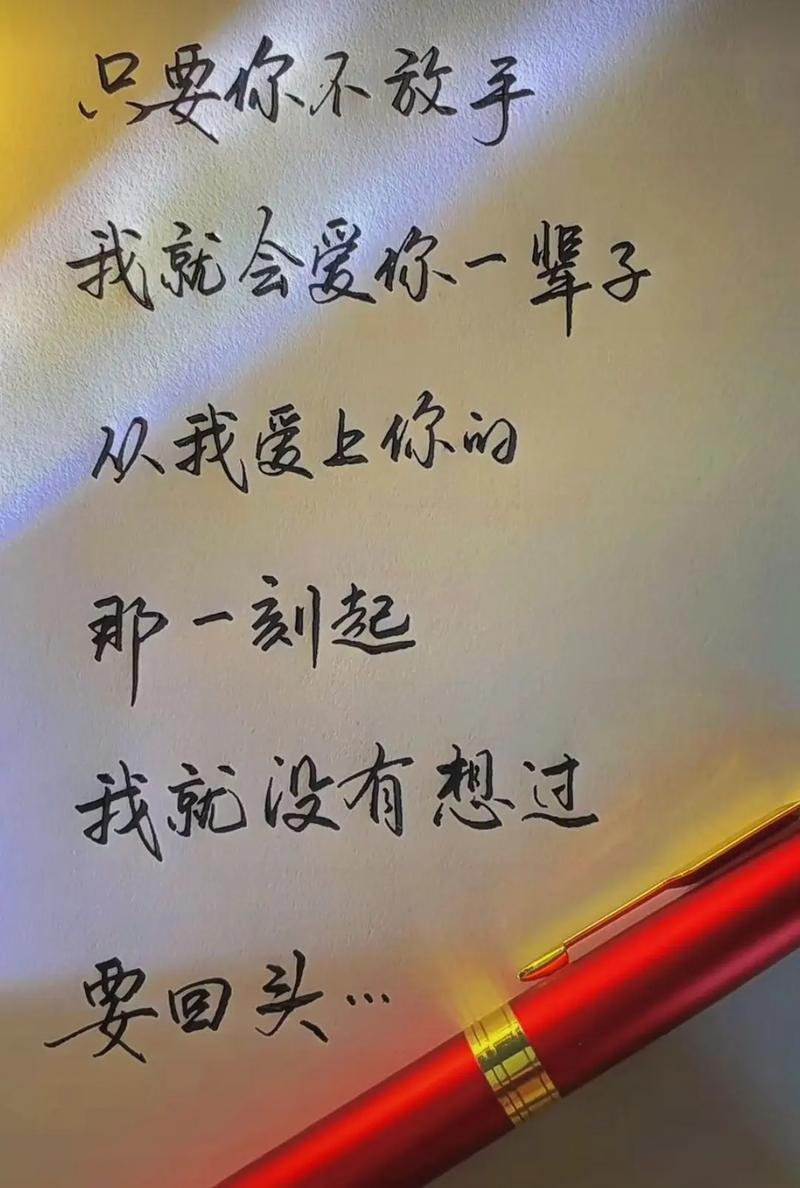 只要你不放手
我就会爱你一辈子
从我爱上你的
那一刻起
我就没有想过
要回头…